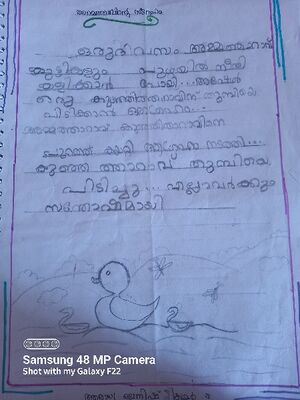 ഒരുദിവസം അമ്മത്താറാവ്
കുട്ടികളും പുഴയിൽ നീന്തി
കളിക്കാൻ പോയി... അപ്പോൾ
ഒരു കുഞ്ഞിത്താറാവിന് തുമ്പിയെ
പിടിക്കാൻ
അമ്മത്താറാവ് കുഞ്ഞിതാറാവിനെ
പുറത്ത് കയറ്റി നടത്തി...
കുഞ്ഞി ത്താറാവ് തുമ്പിയെ
പിടിച്ചു... എല്ലാവർക്കും
സന്തോഷമായി
Samsung 48 MP Camera
Shot with my Galaxy F22